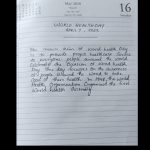 May 2010
16
WORLD HEALTH DAY
APRIL 7, 2022
The main aim of World Health Day
is to provide proper healthcare facilities
to everyone people around the world
Celebrated the occasion of World Health
Day. This day focuses on the awareness
of people around the world to take
care of their health. In the World
Health Organization organised the first
World Health Assembly